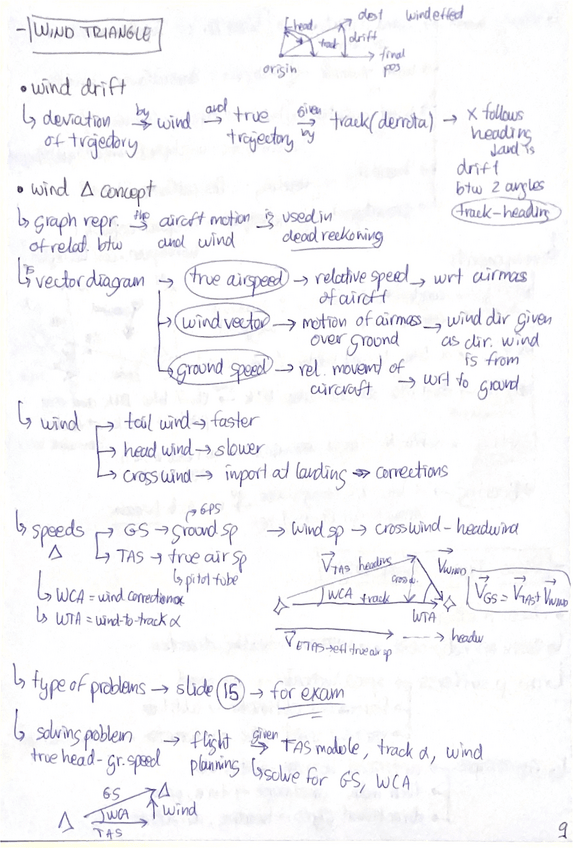 - WIND TRIANGLE
head. dest wind effect
track drift
origin final pos
• wind drift
↳ deviation of trajectory by → wind and → true trajectory given by → track (derrota) → x follows heading and is drift btw 2 angles
track-heading
• wind Δ concept
↳ graph repr. of relat. btw the → aircraft motion and wind is → used in dead reckoning
↳ is vector diagram → true airspeed → relative speed of aircft → wrt airmas
→ wind vector → motion of airmass over ground → wind dir given as dir. wind is from
→ ground speed → rel. movemt of aircraft → wrt to ground
↳ wind → tail wind → faster
→ head wind → slower
→ crosswind → import at landing => corrections
↳ speeds Δ → GS → ground sp → GPS → wind sp → crosswind - headwind
→ TAS → true air sp
↳ pitot-tube
↳ WCA = wind correction α
↳ WTA = wind-to-track α
V TAS heading V WIND
WCA track cross w. WTA
V GS = V TAS + V WIND
V ETAS → eff true air sp ---> headw
↳ type of problems → slide 15 → for exam
↳ solving problem true head - gr. speed → flight planning given => TAS module, track α, wind
↳ solve for GS, WCA
GS Δ
Δ WCA wind
TAS
9